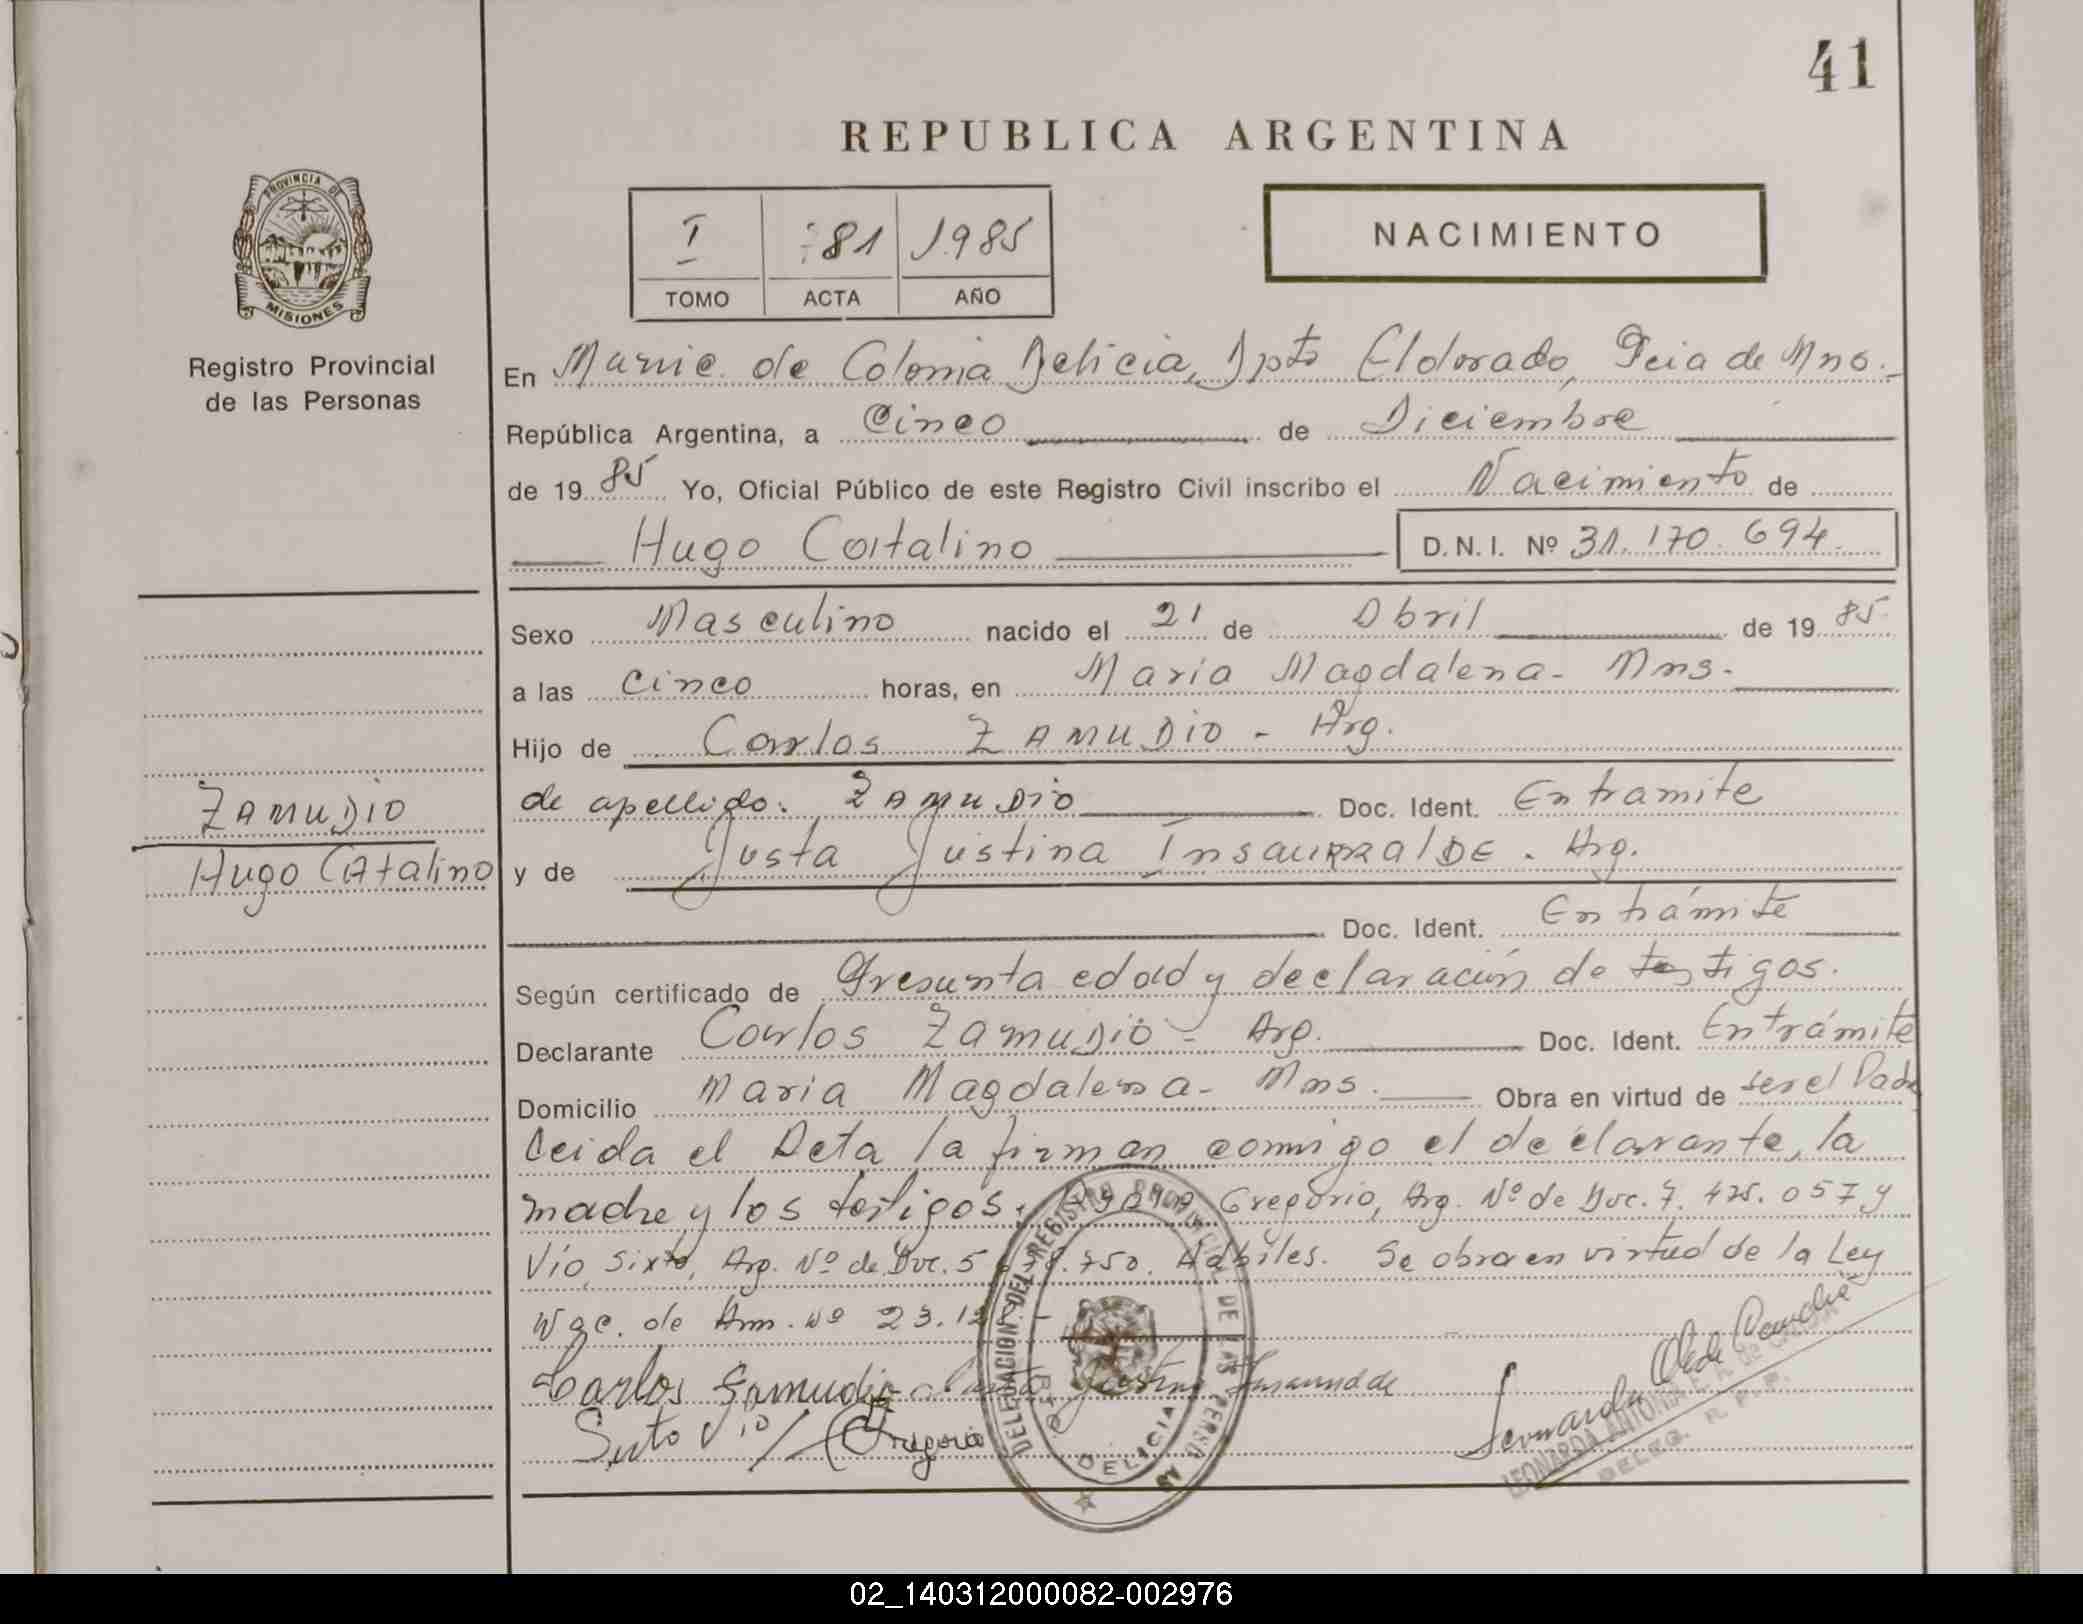 41
REPUBLICA ARGENTINA
PROVINCIA DE
MISIONES
Registro Provincial
de las Personas
I 81 1985
TOMO ACTA AÑO
NACIMIENTO
En Munic. de Colonia Delicia, Dpto Eldorado, Pcia de Mns.
República Argentina, a Cinco de Diciembre
de 1985 Yo, Oficial Público de este Registro Civil inscribo el Nacimiento de
Hugo Catalino D.N.I. Nº 31.170.694
Sexo Masculino nacido el 21 de Abril de 1985
a las cinco horas, en Maria Magdalena - Mns.
Hijo de Carlos ZAMUDIO - Arg.
de apellido: ZAMUDIO Doc. Ident. En tramite
y de Justa Justina INSAURRALDE. Arg.
Doc. Ident. En trámite
ZAMUDIO
Hugo Catalino
Según certificado de Presunta edad y declaración de testigos.
Declarante Carlos Zamudio - Arg. Doc. Ident. En trámite
Domicilio Maria Magdalena - Mns. Obra en virtud de ser el Padre
Leida el Acta la firman conmigo el declarante, la
madre y los testigos: Gregorio, Arg. Nº de Doc. 7.425.057 y
Vío Sixto, Arg. Nº de Doc. Hábiles. Se obra en virtud de la Ley
Nac. de Amn. Nº
Carlos Zamudio Justina
Sixto Vio Gregorio
DELEGACION DEL REGISTRO PROVINCIAL DE LAS PERSONAS
DELICIA
02_140312000082-002976